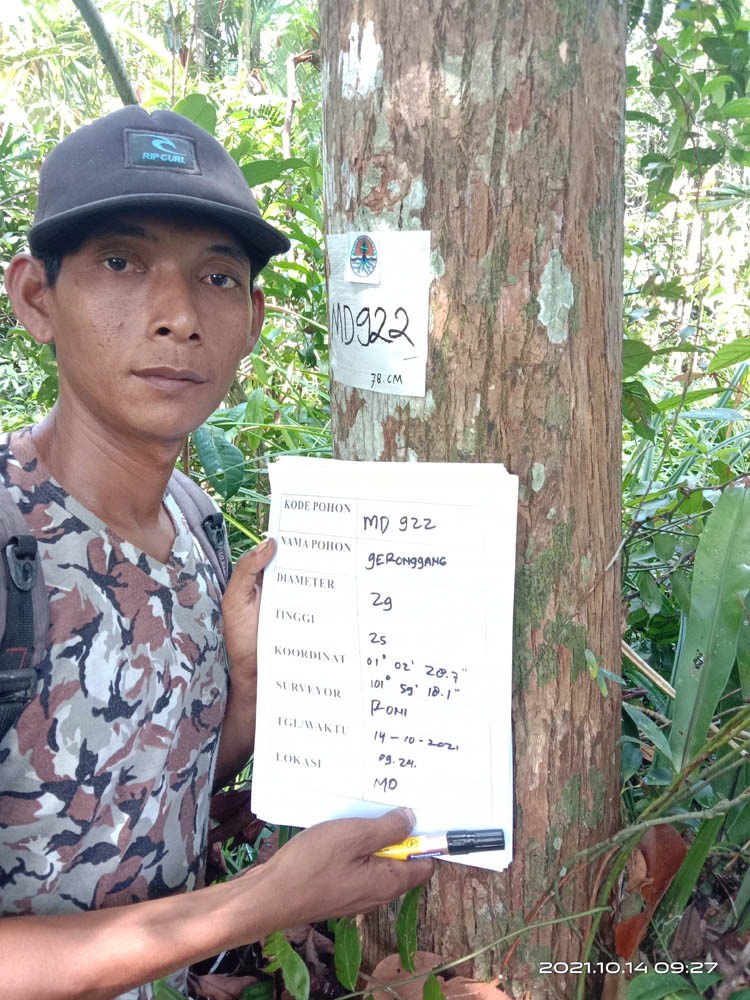 RIP CURL
MD922
78.CM
KODE POHON MD 922
NAMA POHON geRonggAng
DIAMETER 29
TINGGI 25
KOORDINAT 01° 02' 28.7"
101° 59' 18.1"
SURVEYOR RONI
TGL/WAKTU 14-10-2021
09.24.
LOKASI MD
2021.10.14 09:27